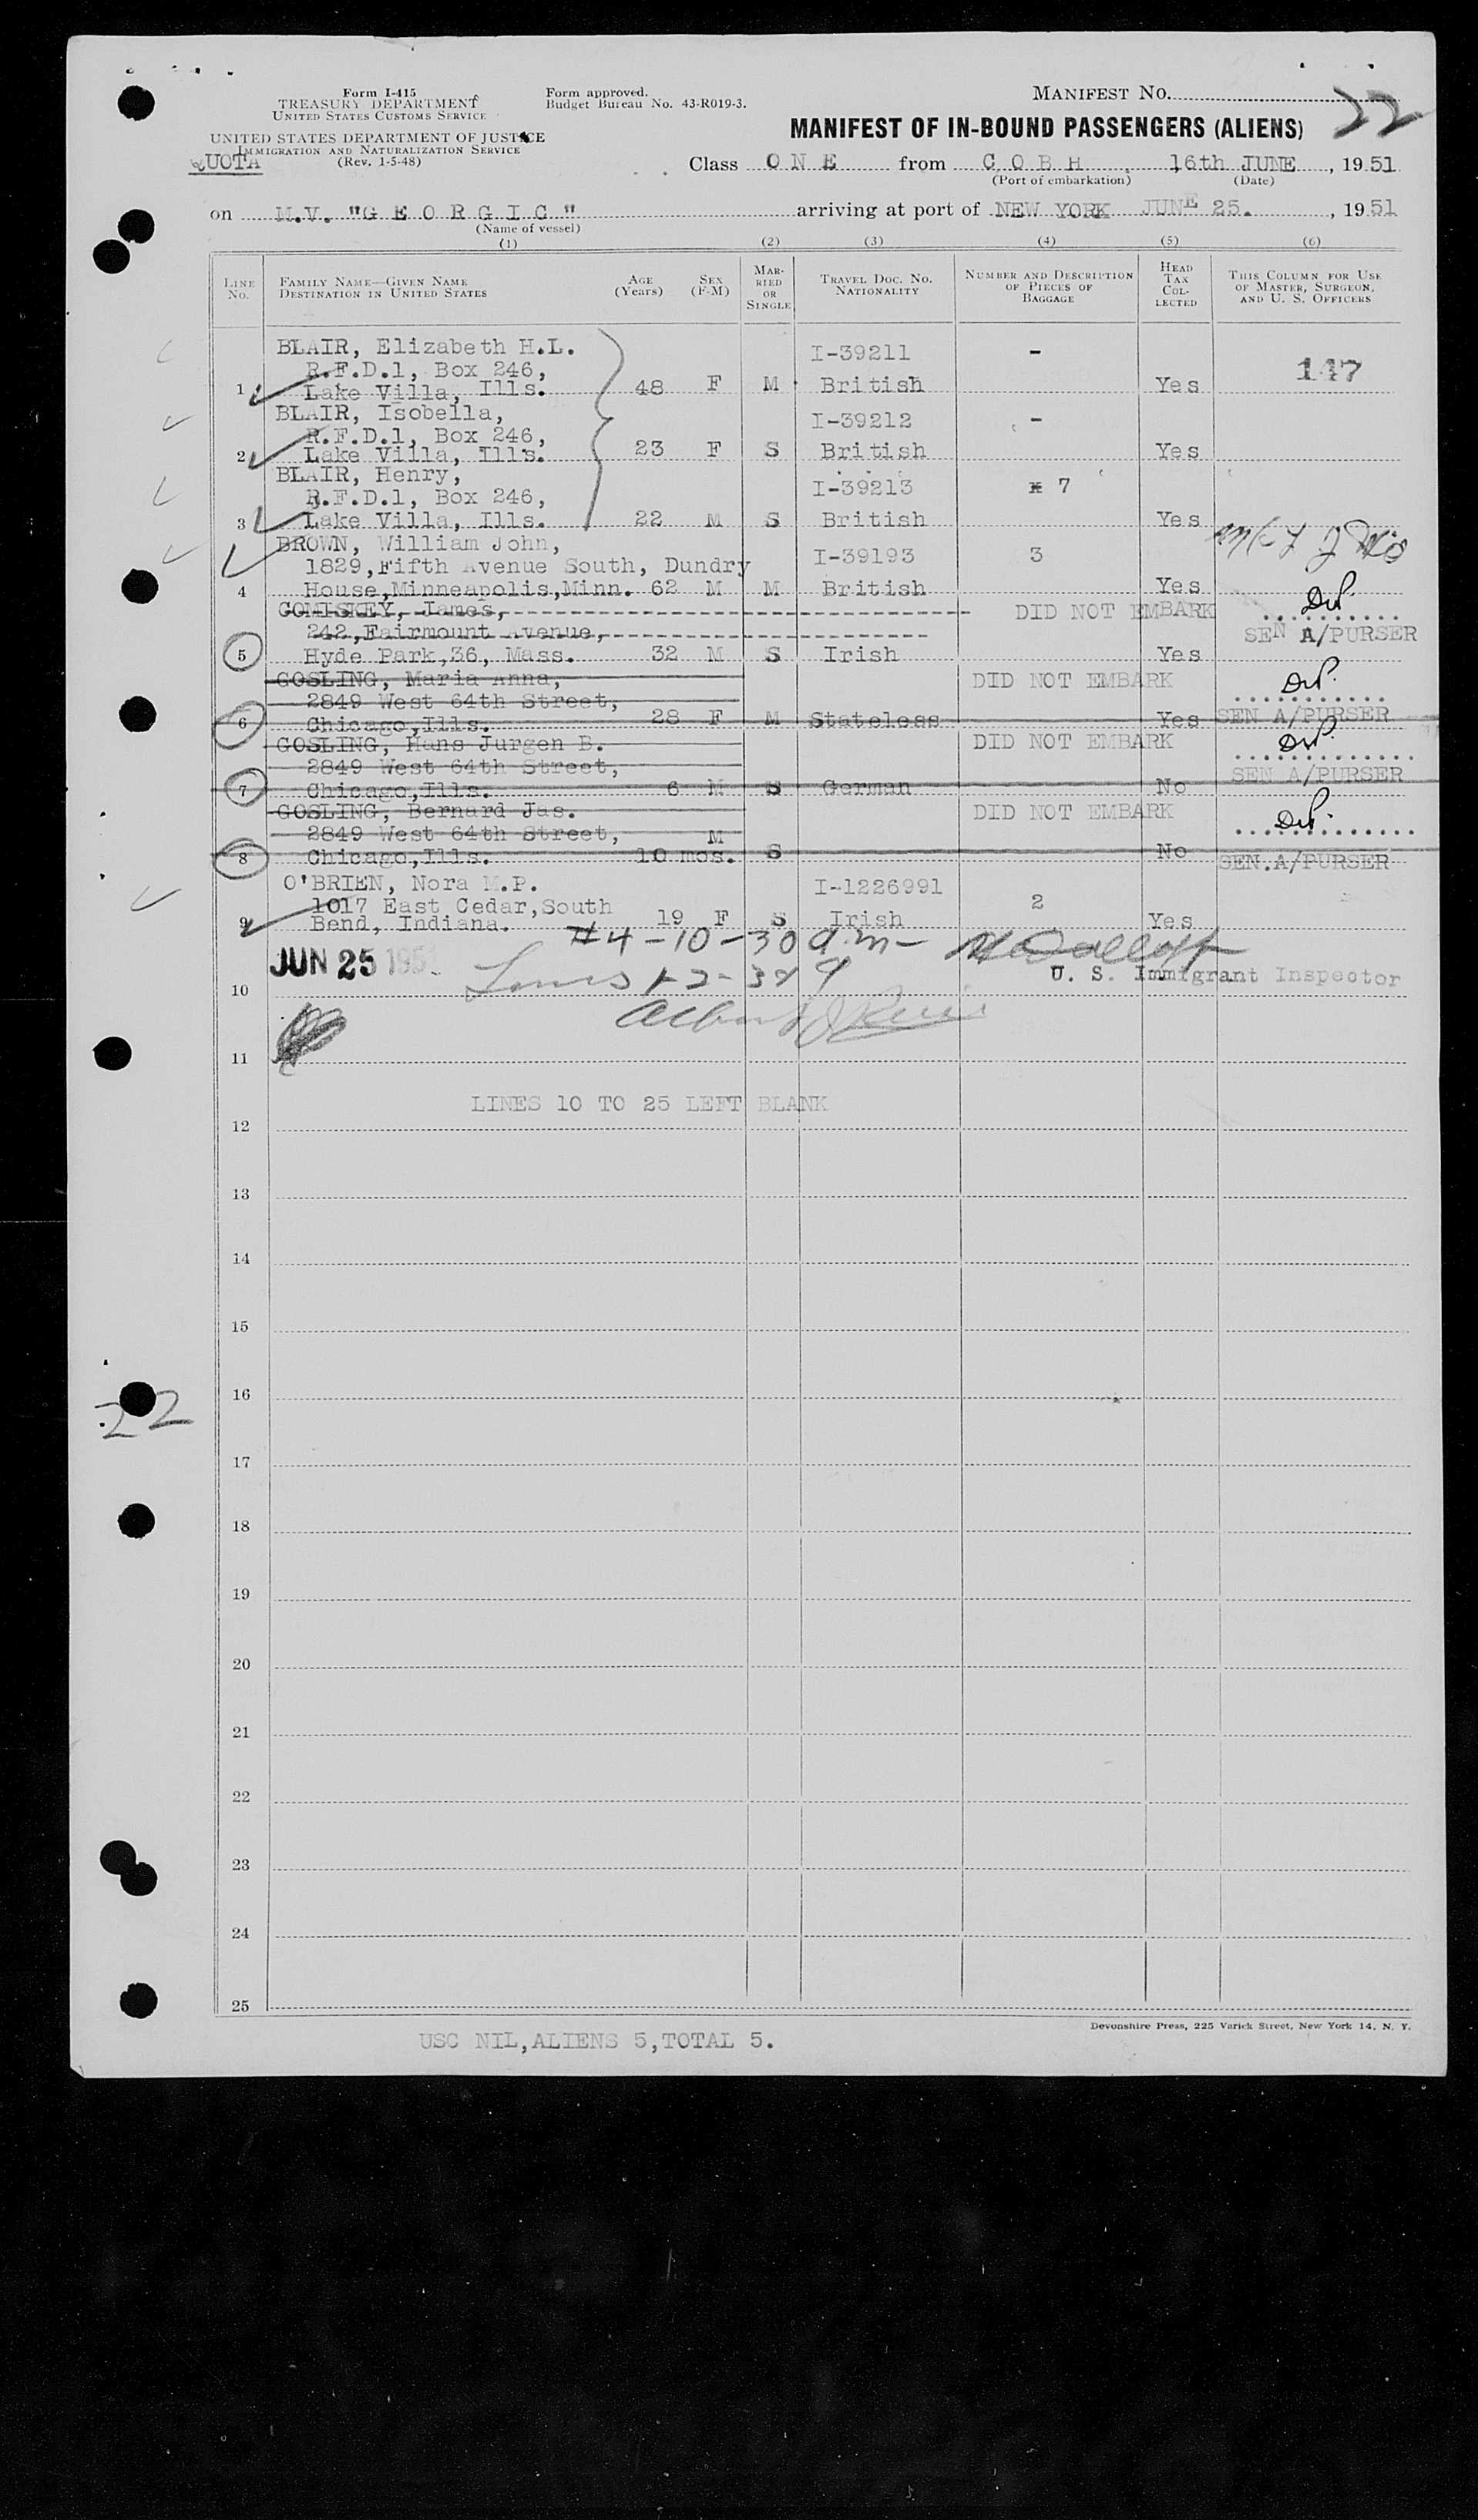 Form I-415
TREASURY DEPARTMENT
UNITED STATES CUSTOMS SERVICE
UNITED STATES DEPARTMENT OF JUSTICE
IMMIGRATION AND NATURALIZATION SERVICE
(Rev. 1-5-48)
QUOTA
Form approved.
Budget Bureau No. 43-R019-3.
MANIFEST NO. 22
MANIFEST OF IN-BOUND PASSENGERS (ALIENS)
Class O N E from C O B H 16th JUNE, 1951
(Port of embarkation) (Date)
on M.V. "G E O R G I C" arriving at port of NEW YORK JUNE 25. , 1951
(Name of vessel)
(1) (2) (3) (4) (5) (6)
LINE NO. FAMILY NAME—GIVEN NAME DESTINATION IN UNITED STATES AGE (Years) SEX (F-M) MARRIED OR SINGLE TRAVEL DOC. NO. NATIONALITY NUMBER AND DESCRIPTION OF PIECES OF BAGGAGE HEAD TAX COLLECTED THIS COLUMN FOR USE OF MASTER, SURGEON, AND U. S. OFFICERS
BLAIR, Elizabeth H.L. I-39211 -
R.F.D.1, Box 246, 147
1 Lake Villa, Ills. 48 F M British Yes
BLAIR, Isobella, I-39212 -
R.F.D.1, Box 246,
2 Lake Villa, Ills. 23 F S British Yes
BLAIR, Henry, I-39213 7
R.F.D.1, Box 246,
3 Lake Villa, Ills. 22 M S British Yes
BROWN, William John, I-39193 3
1829,Fifth Avenue South, Dundry
4 House,Minneapolis,Minn. 62 M M British Yes
COMISKEY, James, DID NOT EMBARK
242,Fairmount Avenue, SEN A/PURSER
5 Hyde Park,36, Mass. 32 M S Irish Yes
GOSLING, Maria Anna, DID NOT EMBARK
2849 West 64th Street,
6 Chicago,Ills. 28 F M Stateless Yes SEN A/PURSER
GOSLING, Hans Jurgen B. DID NOT EMBARK
2849 West 64th Street, SEN A/PURSER
7 Chicago,Ills. 6 M S German No
GOSLING, Bernard Jas. DID NOT EMBARK
2849 West 64th Street, M
8 Chicago,Ills. 10 mos. S No SEN.A/PURSER
O'BRIEN, Nora M.P. I-1226991
1017 East Cedar,South 2
9 Bend, Indiana. 19 F S Irish Yes
#4-10-30 a.m-
JUN 25 1951
U. S. Immigrant Inspector
10
11
LINES 10 TO 25 LEFT BLANK
12
13
14
15
16
22
17
18
19
20
21
22
23
24
25
Devonshire Press, 225 Varick Street, New York 14, N. Y.
USC NIL,ALIENS 5,TOTAL 5.